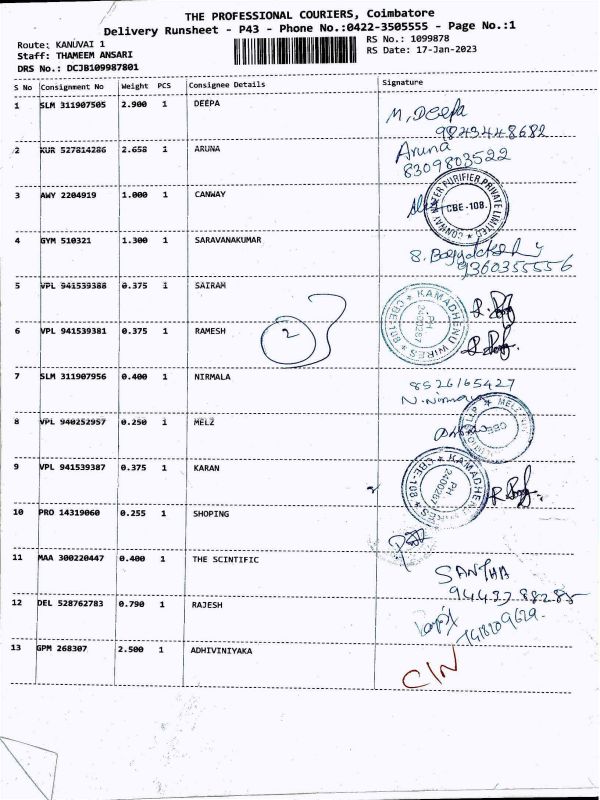 THE PROFESSIONAL COURIERS, Coimbatore
Delivery Runsheet - P43 - Phone No.:0422-3505555 - Page No.:1
Route: KANUVAI 1
RS No.: 1099878
Staff: THAMEEM ANSARI
RS Date: 17-Jan-2023
DRS No.: DCJB109987801
S No Consignment No Weight PCS Consignee Details Signature
1 SLM 311907505 2.900 1 DEEPA M, Deepa
9843448682
2 KUR 527814286 2.658 1 ARUNA Aruna
8309803522
3 AWY 2204919 1.000 1 CANWAY
CONWAY WATER PURIFIER PRIVATE LIMITED
CBE-108.
4 GYM 510321 1.300 1 SARAVANAKUMAR
9360355556
5 VPL 941539388 0.375 1 SAIRAM
KAMADHENU WIRES
CBE-108
PH
2400287
6 VPL 941539381 0.375 1 RAMESH
2
7 SLM 311907956 0.400 1 NIRMALA 8526165427
N.Nirmala
8 VPL 940252957 0.250 1 MELZ
MELZ
CBE
LLP
9 VPL 941539387 0.375 1 KARAN
KAMADHENU
CBE-108
PH
240028
10 PRO 14319060 0.255 1 SHOPING
11 MAA 300220447 0.400 1 THE SCINTIFIC SANTHA
12 DEL 528762783 0.790 1 RAJESH
13 GPM 268307 2.500 1 ADHIVINIYAKA CIN